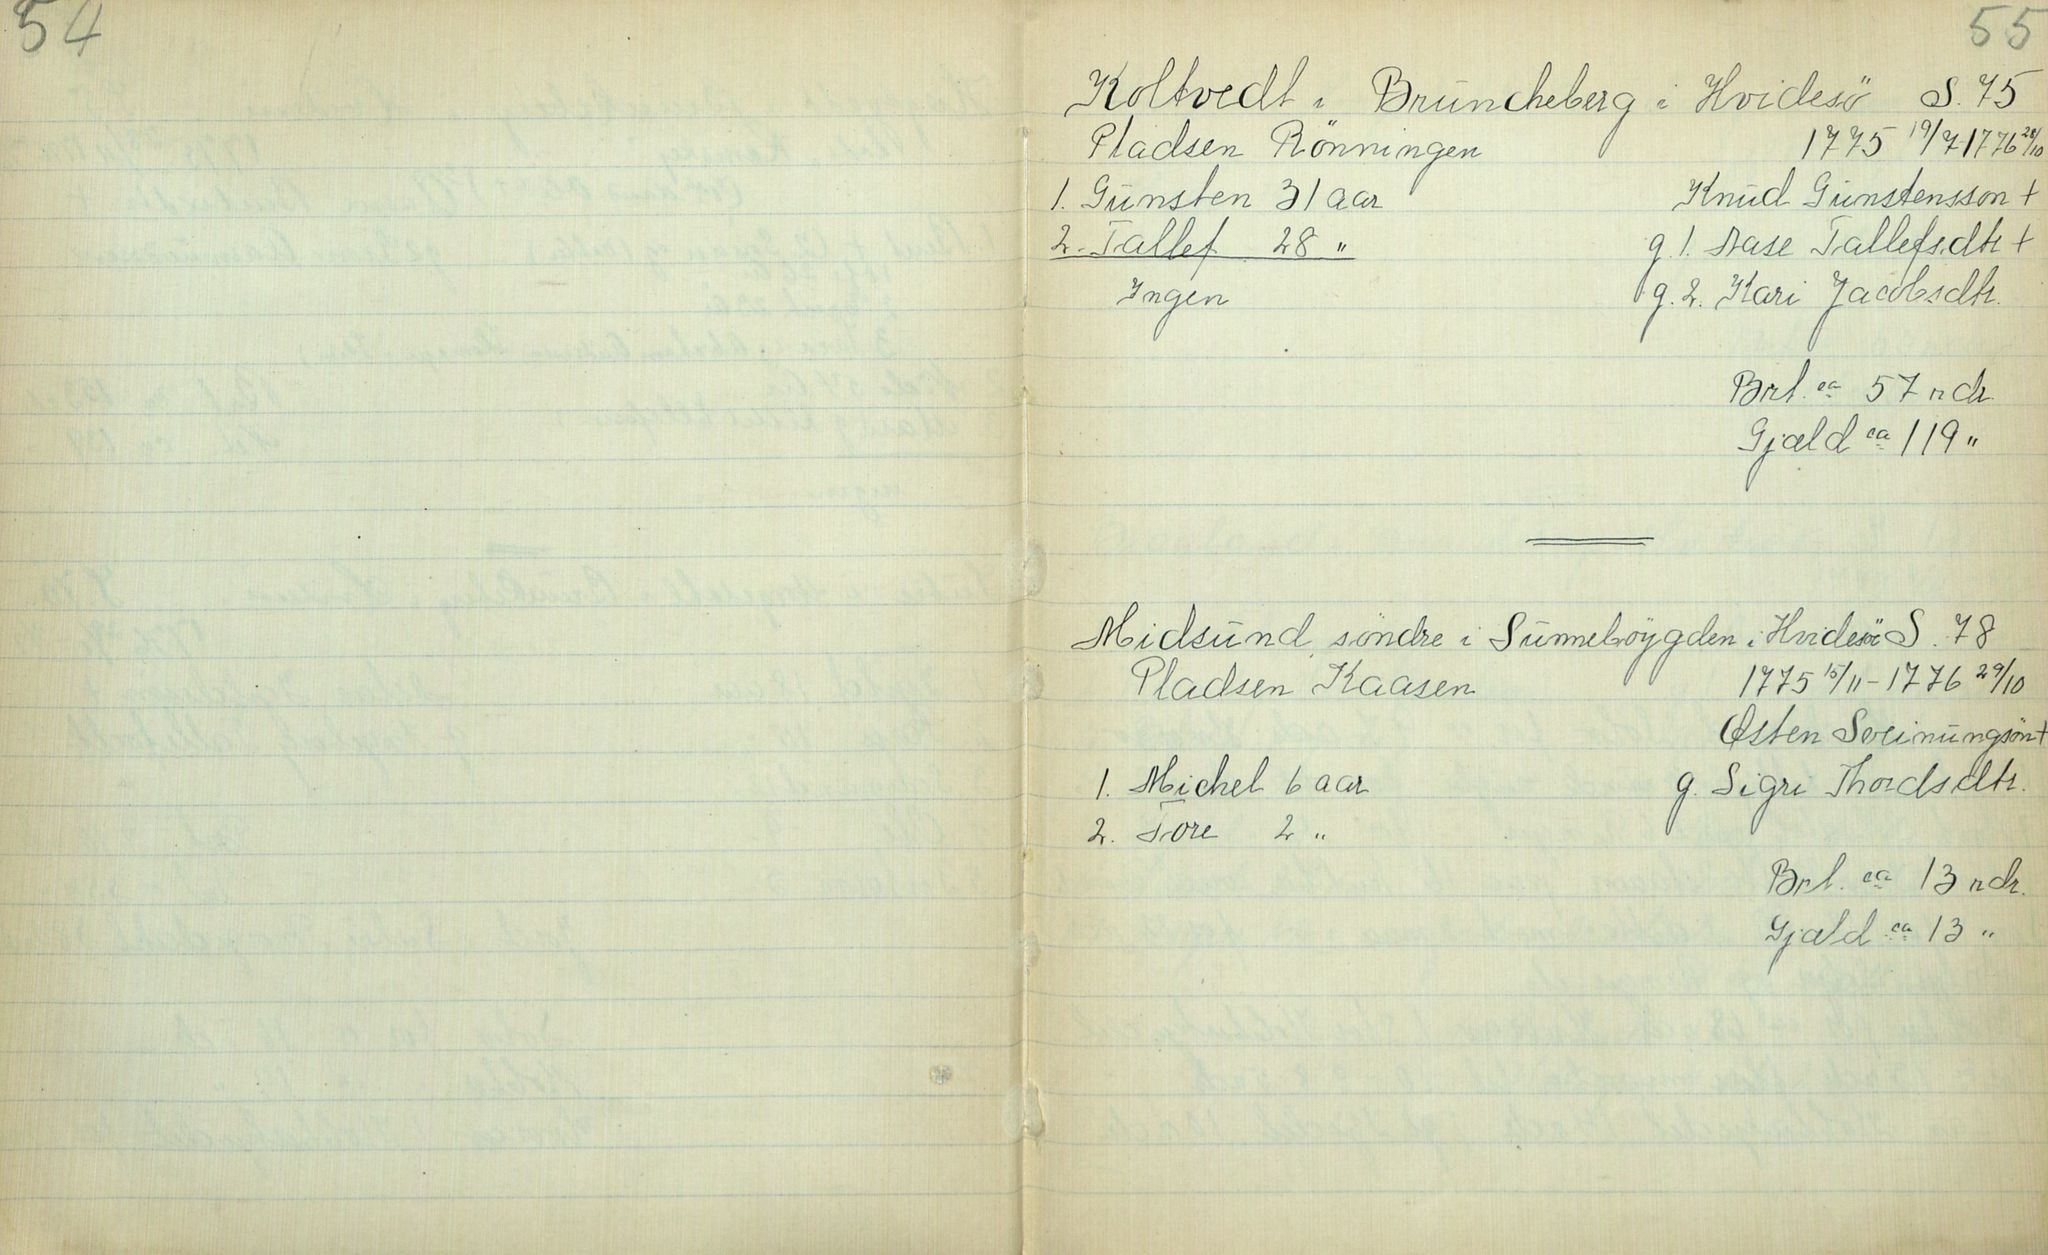 54
55
Koltvedt i Bruncheberg i Hvidesö S. 75
Pladsen Rönningen 1775 19/7 1776 28/10
1. Gunsten 31 aar Knud Gunstensson +
2. Tallef 28 " g. 1. Aase Tallefsdtr +
Ingen g. 2. Kari Jacobsdtr.
Brl. ca 57 rdr.
Gjæld ca 119 "
Midsund söndre i Sunneböygden i Hvidesö S. 78
Pladsen Kaasen 1775 15/11 - 1776 29/10
Østen Sveinungsön +
1. Michel 6 aar g. Sigri Thordsdtr.
2. Tore 2 "
Brl. ca 13 rdr.
Gjæld ca 13 "